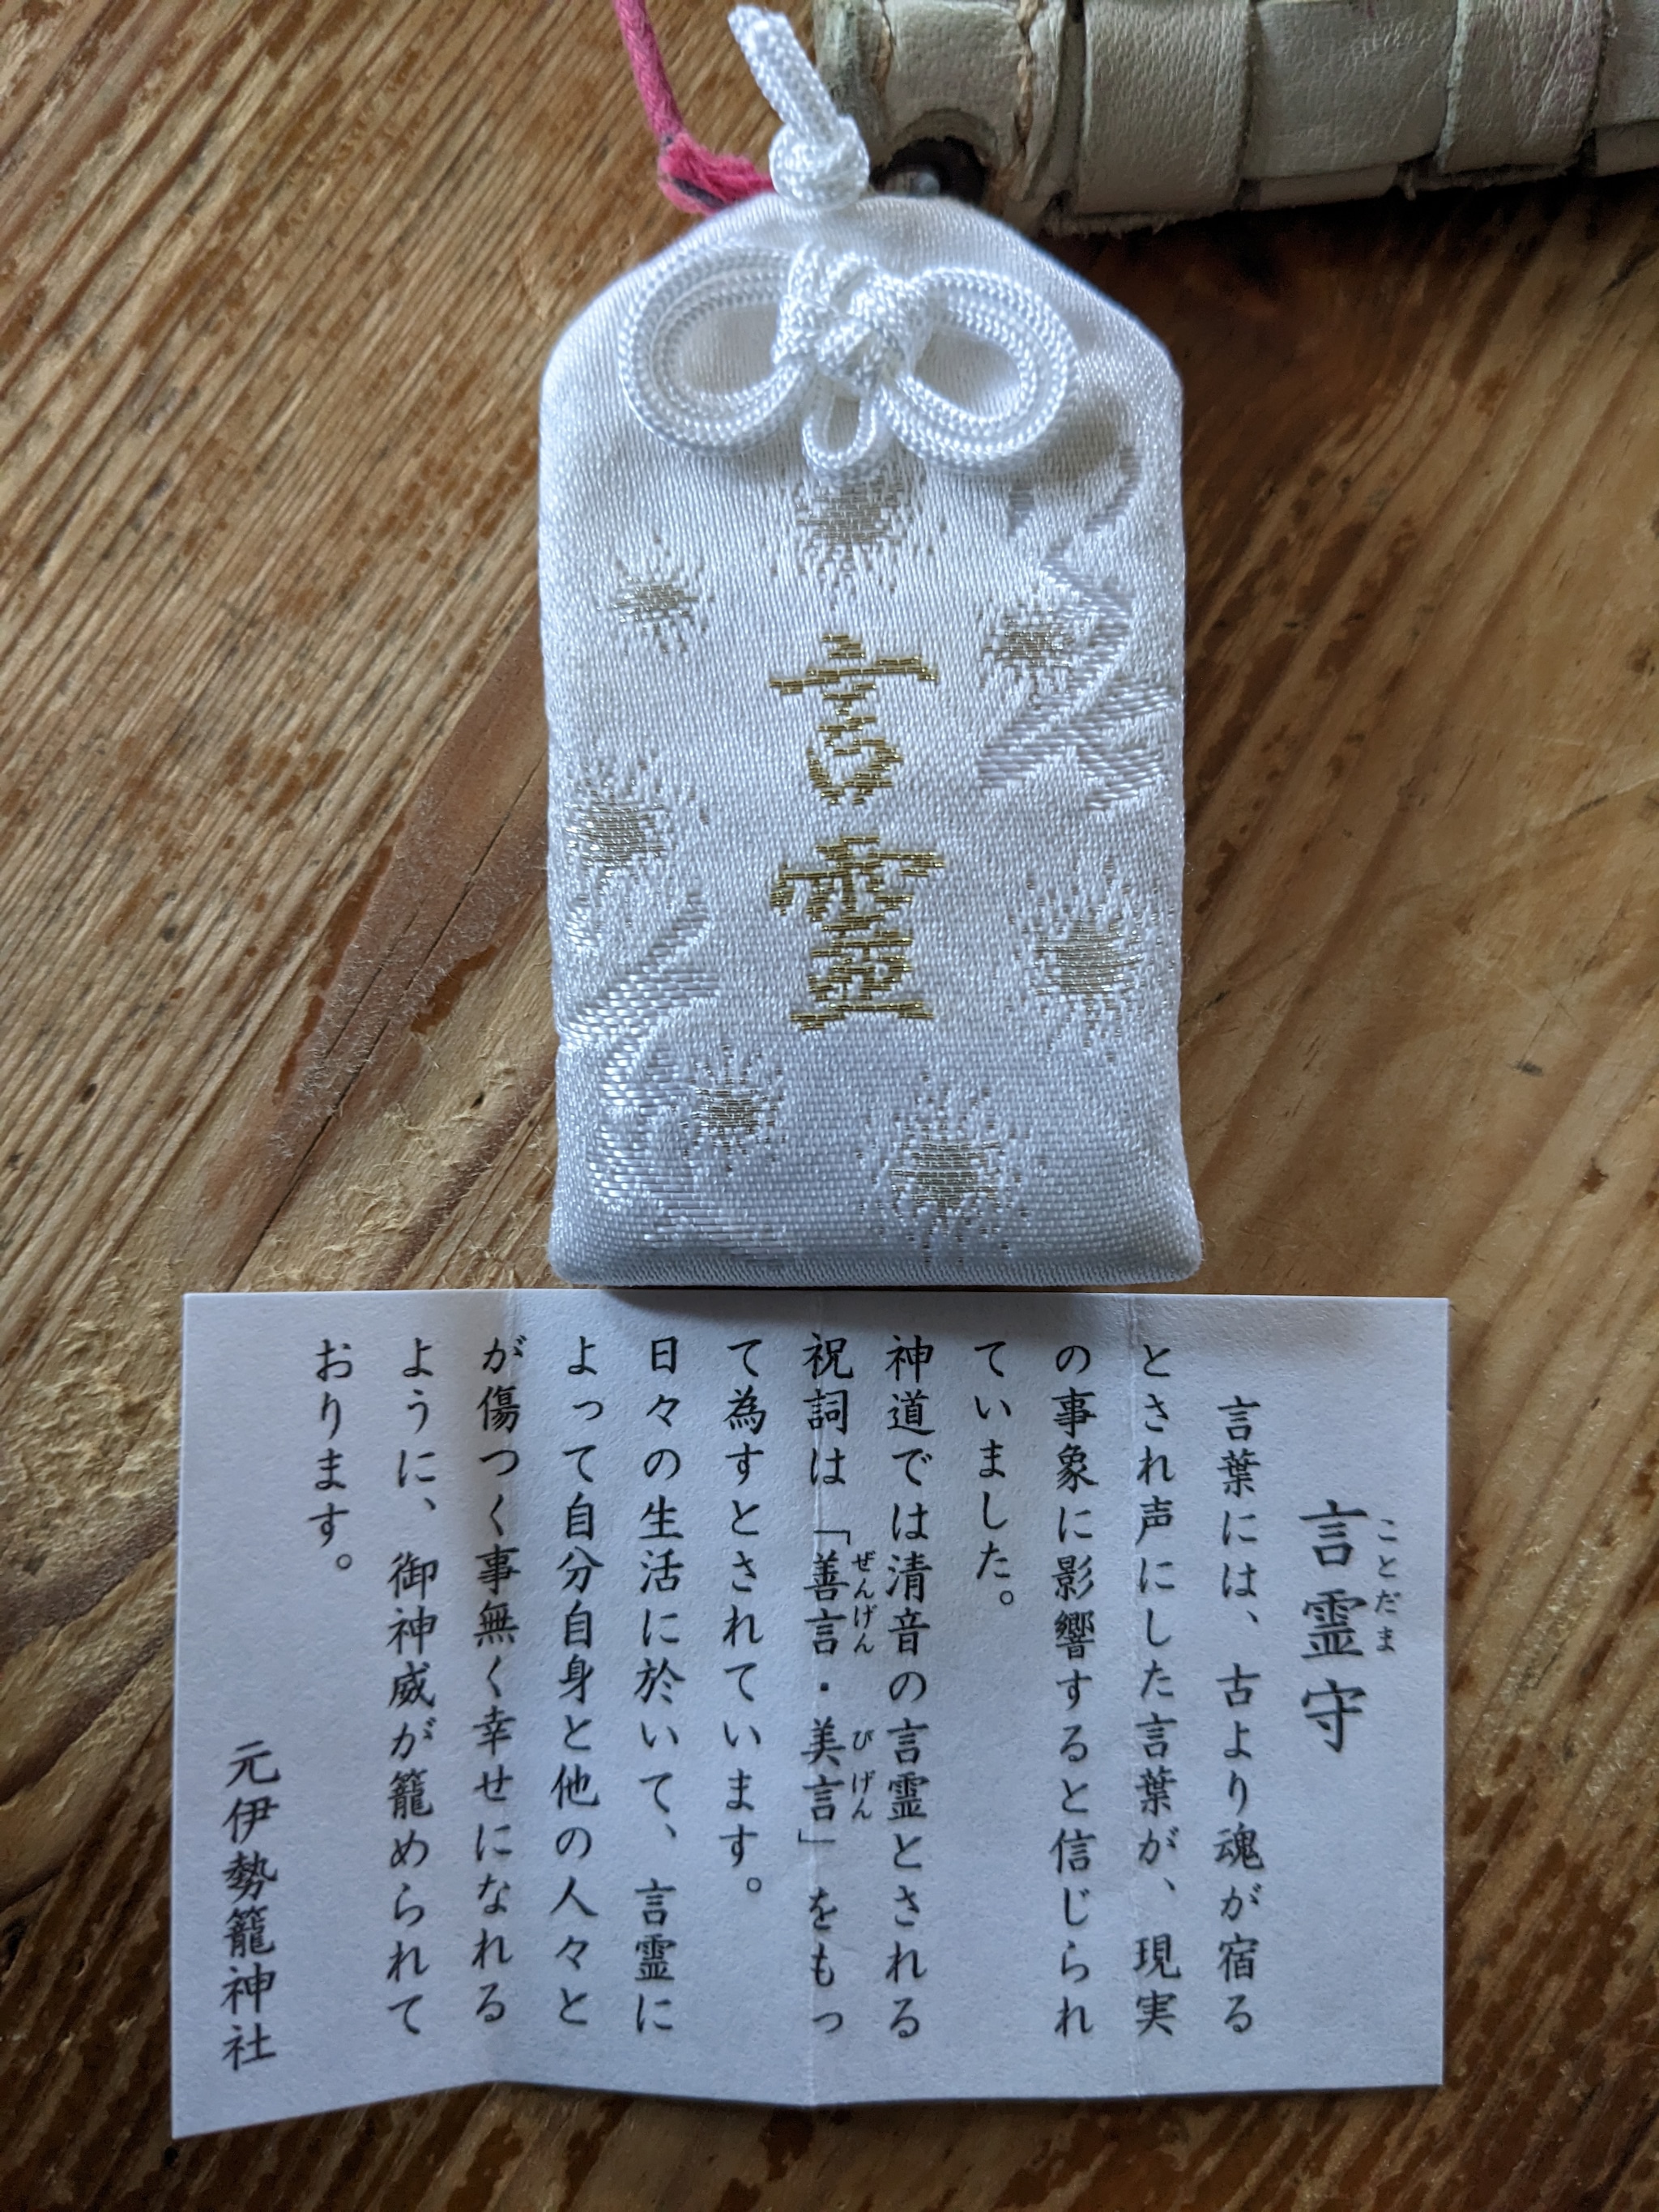 言霊
言霊守
ことだま
言葉には、古より魂が宿る
とされ声にした言葉が、現実
の事象に影響すると信じられ
ていました。
神道では清音の言霊とされる
祝詞は「善言・美言」をもっ
ぜんげん
びげん
て為すとされています。
日々の生活に於いて、言霊に
よって自分自身と他の人々と
が傷つく事無く幸せになれる
ように、御神威が籠められて
おります。
元伊勢籠神社